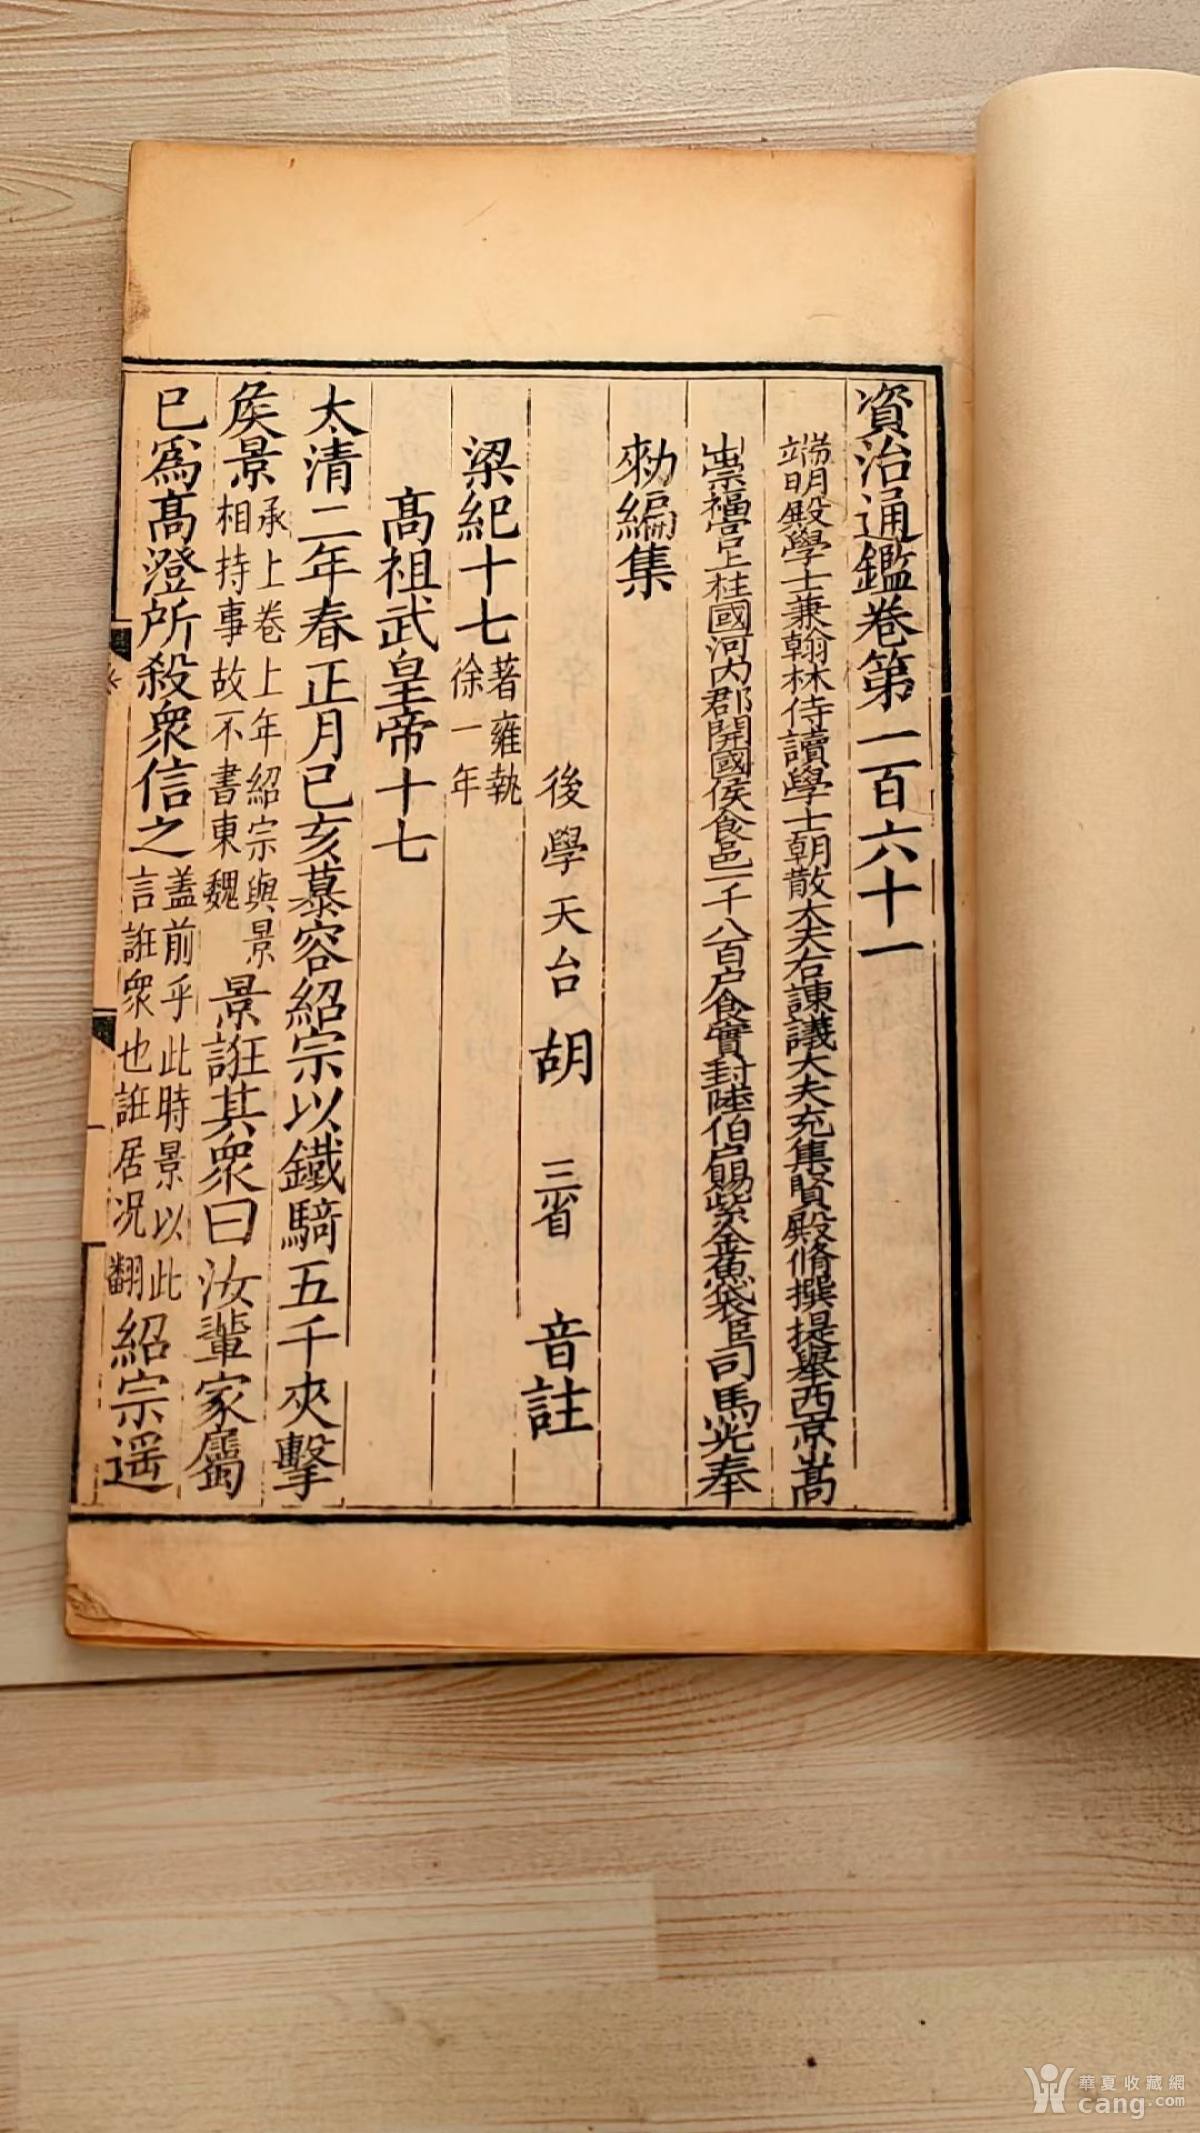 資治通鑑卷第一百六十一
端明殿學士兼翰林侍讀學士朝散大夫右諫議大夫充集賢殿脩撰提舉西京嵩
山崇福宮上柱國河內郡開國侯食邑一千八百戶食實封陸伯戶賜紫金魚袋臣司馬光奉
勑編集
後學天台胡三省音註
梁紀十七著雍執徐一年
高祖武皇帝十七
太清二年春正月己亥慕容紹宗以鐵騎五千夾擊
侯景承上卷上年紹宗與景相持事故不書東魏景誑其衆曰汝輩家屬
已爲高澄所殺衆信之蓋前乎此時景以此言誑衆也誑居况翻紹宗遥
華夏收藏網
cang.com